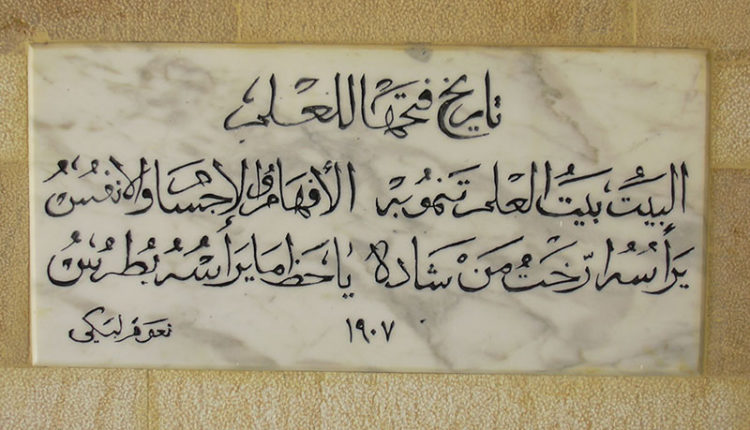 تاريخ فتحها للعلم
البيتُ بيتُ العلم تنمو به الأفهام والاجسام والانفسُ
يرأسه ارّختُ من شاده يا حظ ما يرأسُه بُطرسُ
١٩٠٧ نعوم لبكي